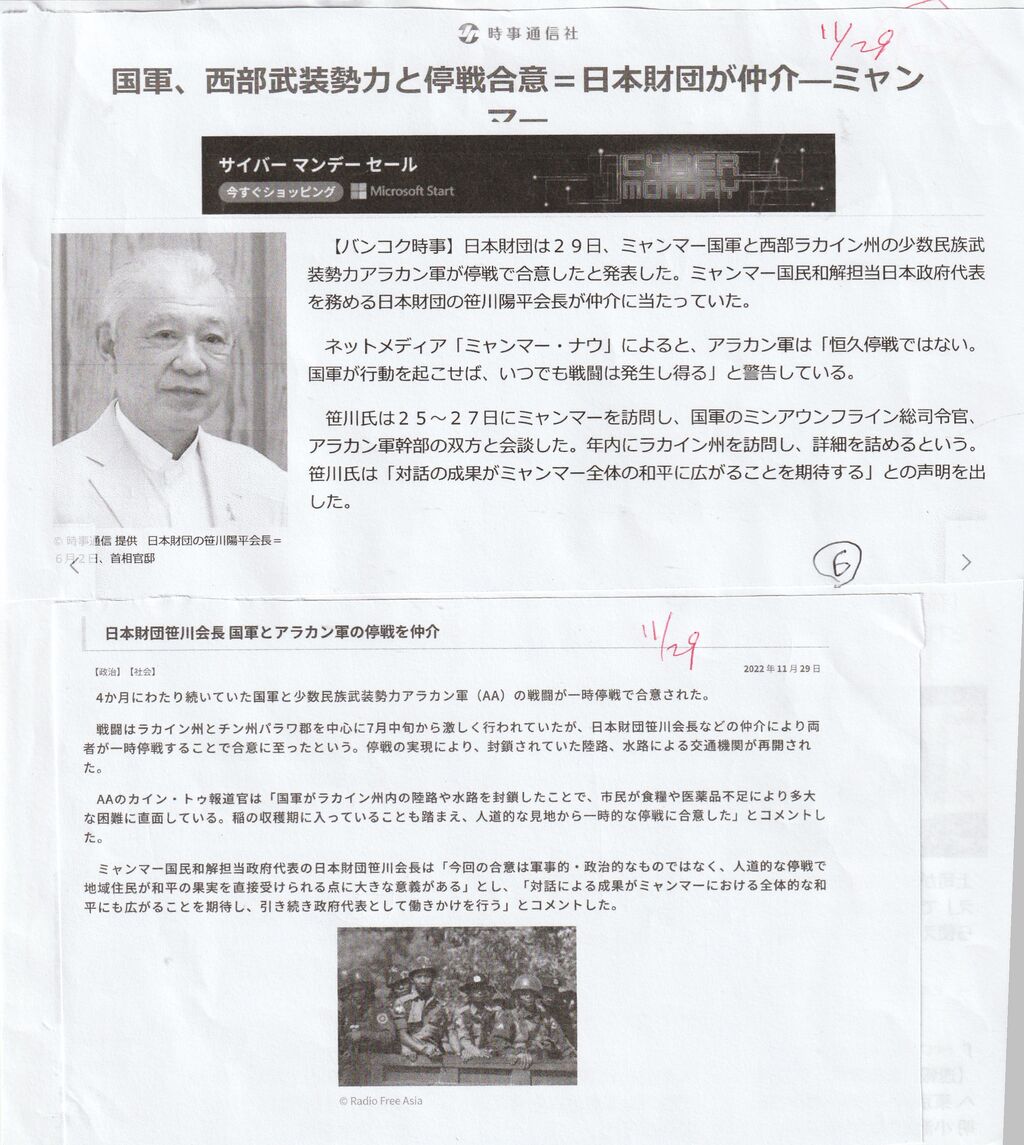 時事通信社
11/29
国軍、西部武装勢力と停戦合意＝日本財団が仲介―ミャン
マー
サイバー マンデー セール
今すぐショッピング Microsoft Start
CYBER
MONDAY
【バンコク時事】日本財団は２９日、ミャンマー国軍と西部ラカイン州の少数民族武
装勢力アラカン軍が停戦で合意したと発表した。ミャンマー国民和解担当日本政府代表
を務める日本財団の笹川陽平会長が仲介に当たっていた。
ネットメディア「ミャンマー・ナウ」によると、アラカン軍は「恒久停戦ではない。
国軍が行動を起こせば、いつでも戦闘は発生し得る」と警告している。
笹川氏は２５～２７日にミャンマーを訪問し、国軍のミンアウンフライン総司令官、
アラカン軍幹部の双方と会談した。年内にラカイン州を訪問し、詳細を詰めるという。
笹川氏は「対話の成果がミャンマー全体の和平に広がることを期待する」との声明を出
した。
© 時事通信 提供 日本財団の笹川陽平会長＝
６月２日、首相官邸
6
日本財団笹川会長 国軍とアラカン軍の停戦を仲介
11/29
【政治】【社会】
2022 年 11 月 29 日
4か月にわたり続いていた国軍と少数民族武装勢力アラカン軍（AA）の戦闘が一時停戦で合意された。
戦闘はラカイン州とチン州パラワ郡を中心に7月中旬から激しく行われていたが、日本財団笹川会長などの仲介により両
者が一時停戦することで合意に至ったという。停戦の実現により、封鎖されていた陸路、水路による交通機関が再開され
た。
AAのカイン・トゥ報道官は「国軍がラカイン州内の陸路や水路を封鎖したことで、市民が食糧や医薬品不足により多大
な困難に直面している。稲の収穫期に入っていることも踏まえ、人道的な見地から一時的な停戦に合意した」とコメントし
た。
ミャンマー国民和解担当政府代表の日本財団笹川会長は「今回の合意は軍事的・政治的なものではなく、人道的な停戦で
地域住民が和平の果実を直接受けられる点に大きな意義がある」とし、「対話による成果がミャンマーにおける全体的な和
平にも広がることを期待し、引き続き政府代表として働きかけを行う」とコメントした。
© Radio Free Asia